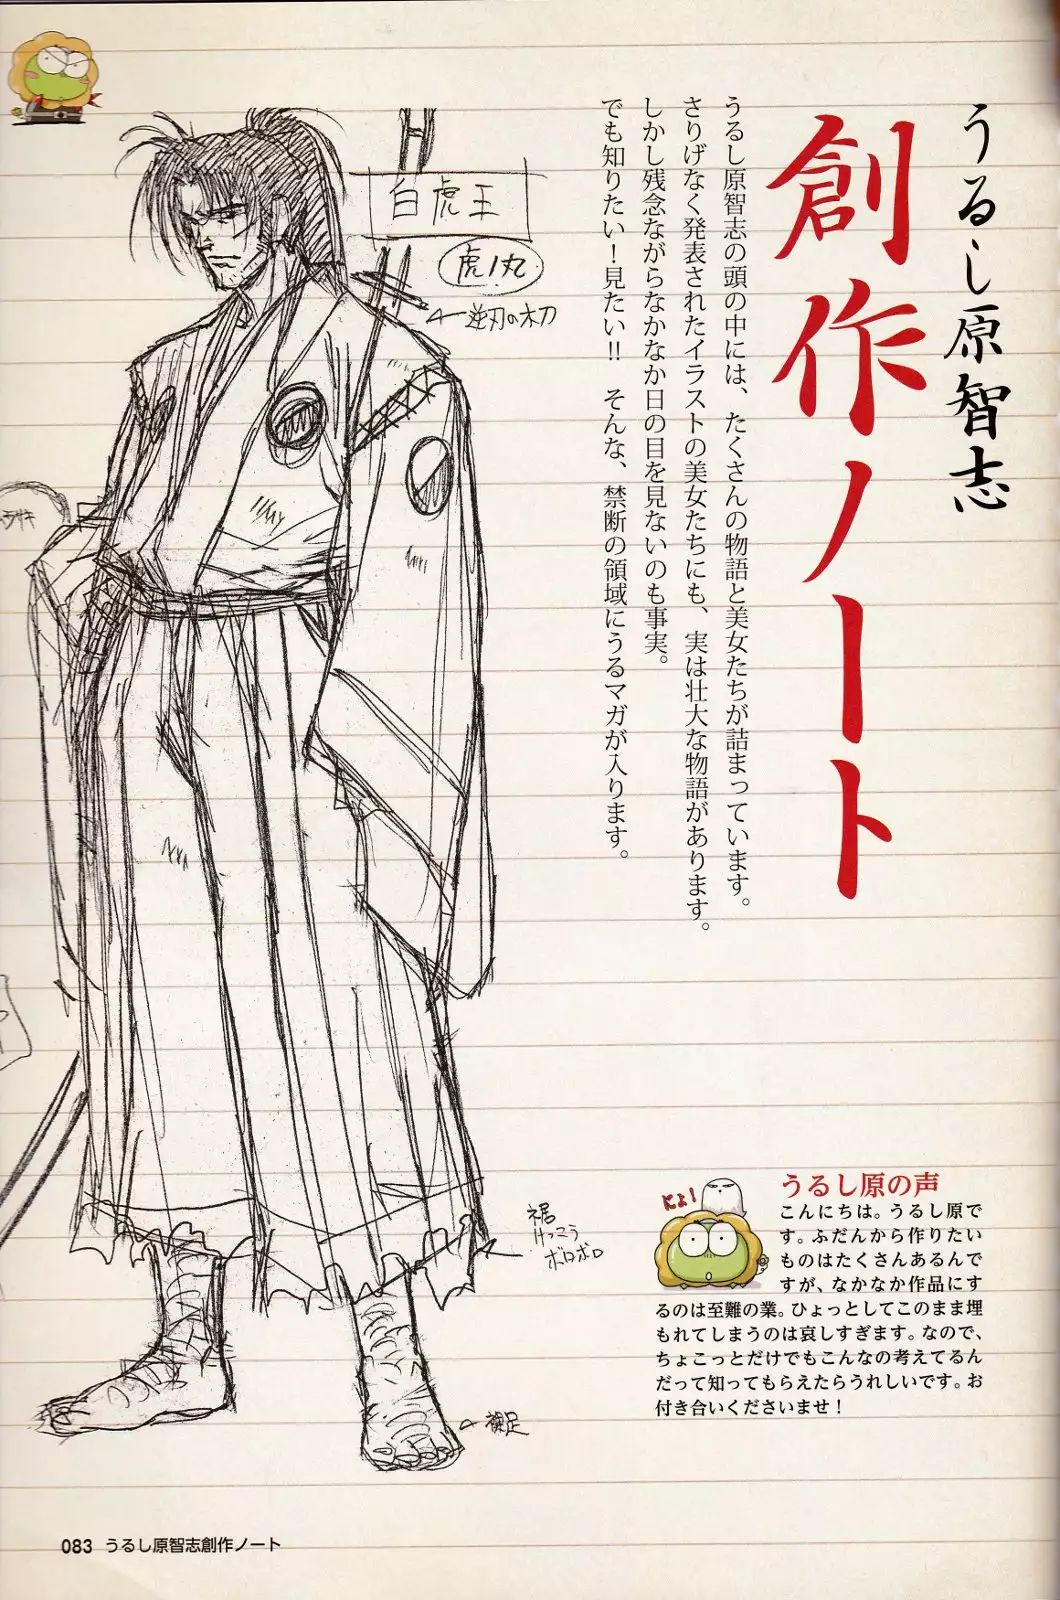 うるし原智志
創作ノート
うるし原智志の頭の中には、たくさんの物語と美女たちが詰まっています。
さりげなく発表されたイラストの美女たちにも、実は壮大な物語があります。
しかし残念ながらなかなか日の目を見ないのも事実。
でも知りたい！見たい!! そんな、禁断の領域にうるマガが入ります。
白虎王
虎ノ丸
逆刃の木刀
裾
けっこう
ボロボロ
裸足
にょ！
うるし原の声
こんにちは。うるし原で
す。ふだんから作りたい
ものはたくさんあるんで
すが、なかなか作品にす
るのは至難の業。ひょっとしてこのまま埋
もれてしまうのは哀しすぎます。なので、
ちょこっとだけでもこんなの考えてるん
だって知ってもらえたらうれしいです。お
付き合いくださいませ！
083 うるし原智志創作ノート